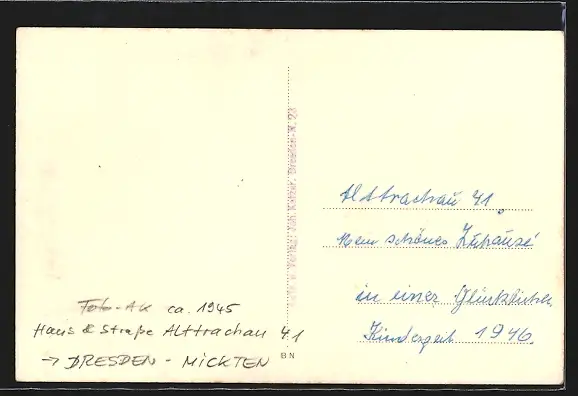 Foto-AK ca. 1945
Haus & Straße Alttrachau 41
→ DRESDEN - MICKTEN
BN
Verlag: Joh. Dresden-N. 23
Alttrachau 41.
Mein schönes Zuhause
in einer Glücklichen
Kinderzeit 1946.